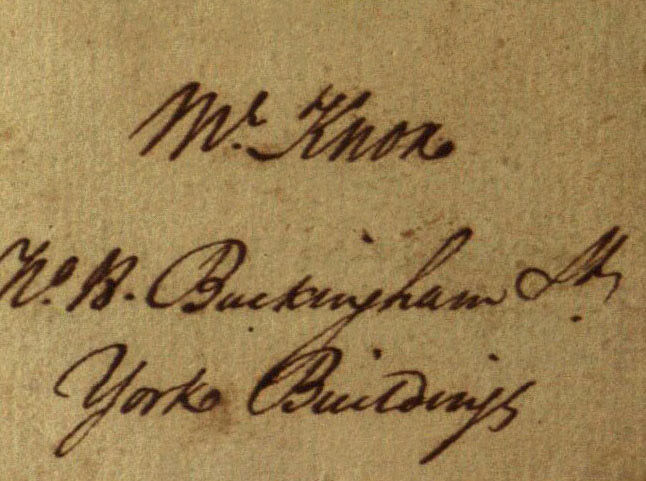 Mr. Knox
No. Buckingham St.
York Buildings